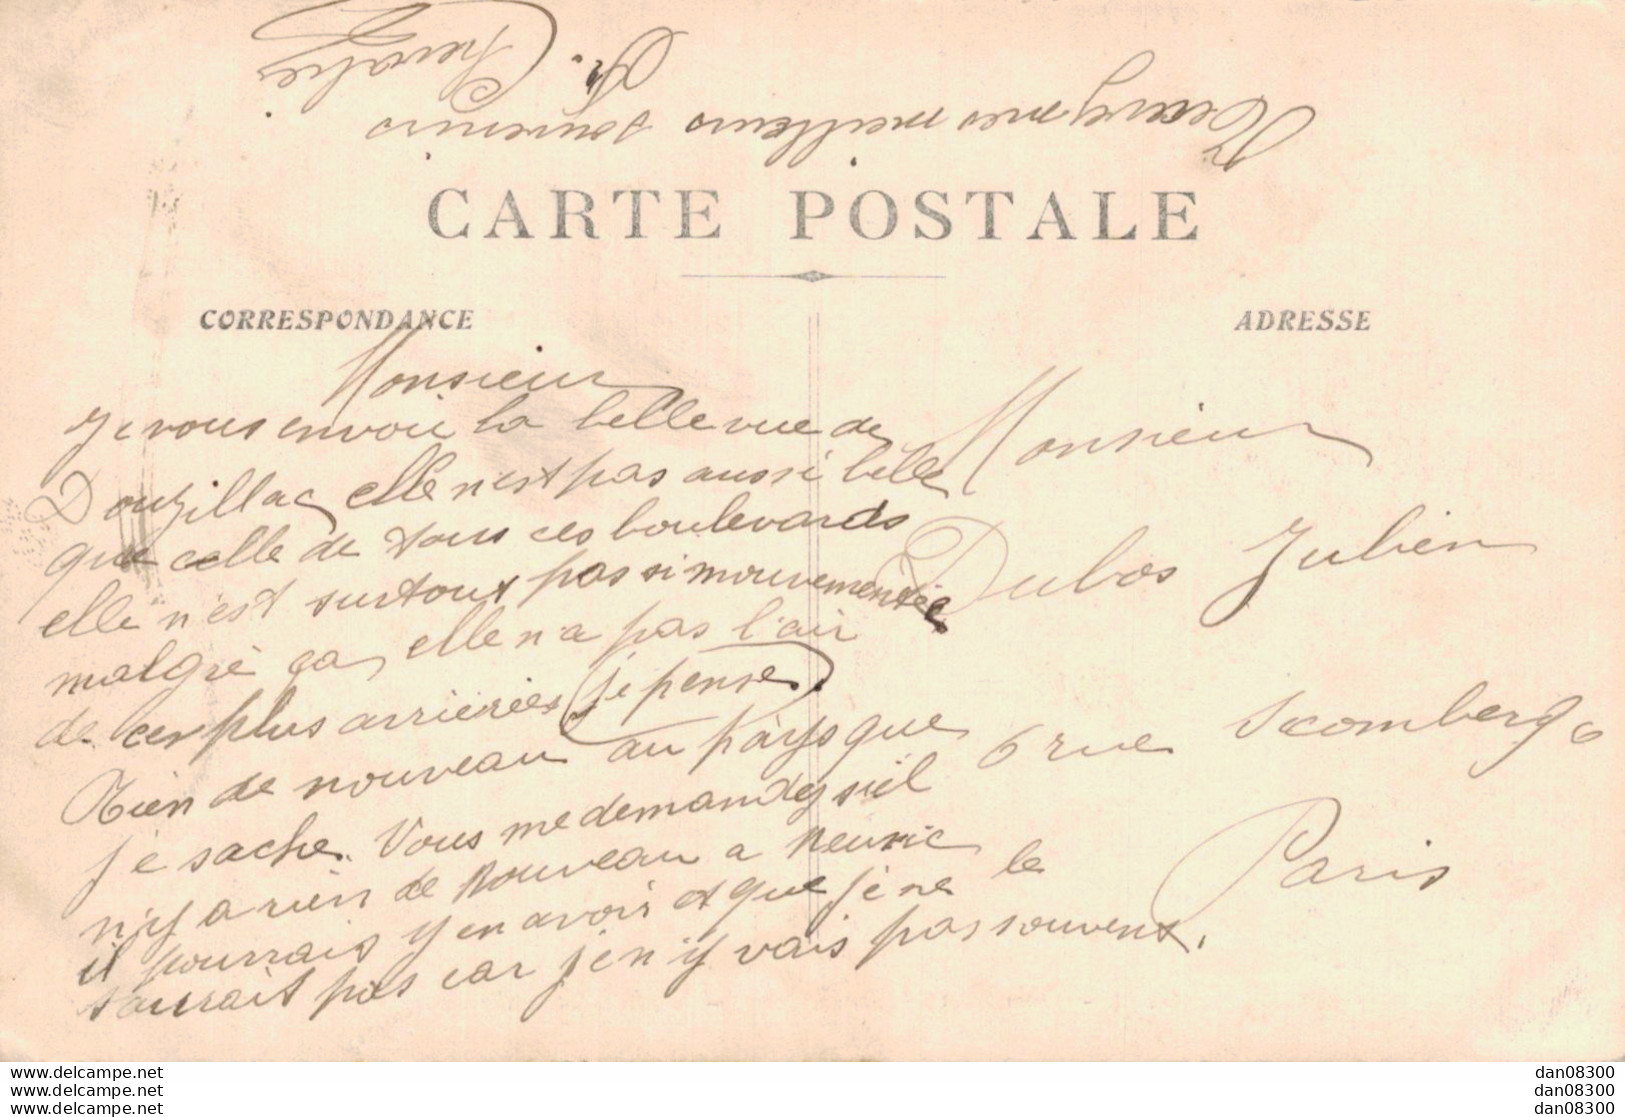 CARTE POSTALE
CORRESPONDANCE
Monsieur
Je vous envoie la belle vue de
Douzillac, elle n'est pas aussi belle
que celle de tous ces boulevards
elle n'est surtout pas si mouvementée
malgré ça, elle n'a pas l'air
de ces plus arriérées (je pense).
Rien de nouveau au pays que
je sache. Vous me demandez siel
n'y a rien de nouveau a Neuvic
il pourrais y en avoir et que je ne le
saurait pas car je n'y vais pas souvent.
Recevez mes meilleurs souvenirs
Chevalier
ADRESSE
Monsieur
Dubos Julien
6 rue Scomberg 6
Paris
www.delcampe.net
www.delcampe.net
www.delcampe.net
dan08300
dan08300
dan08300